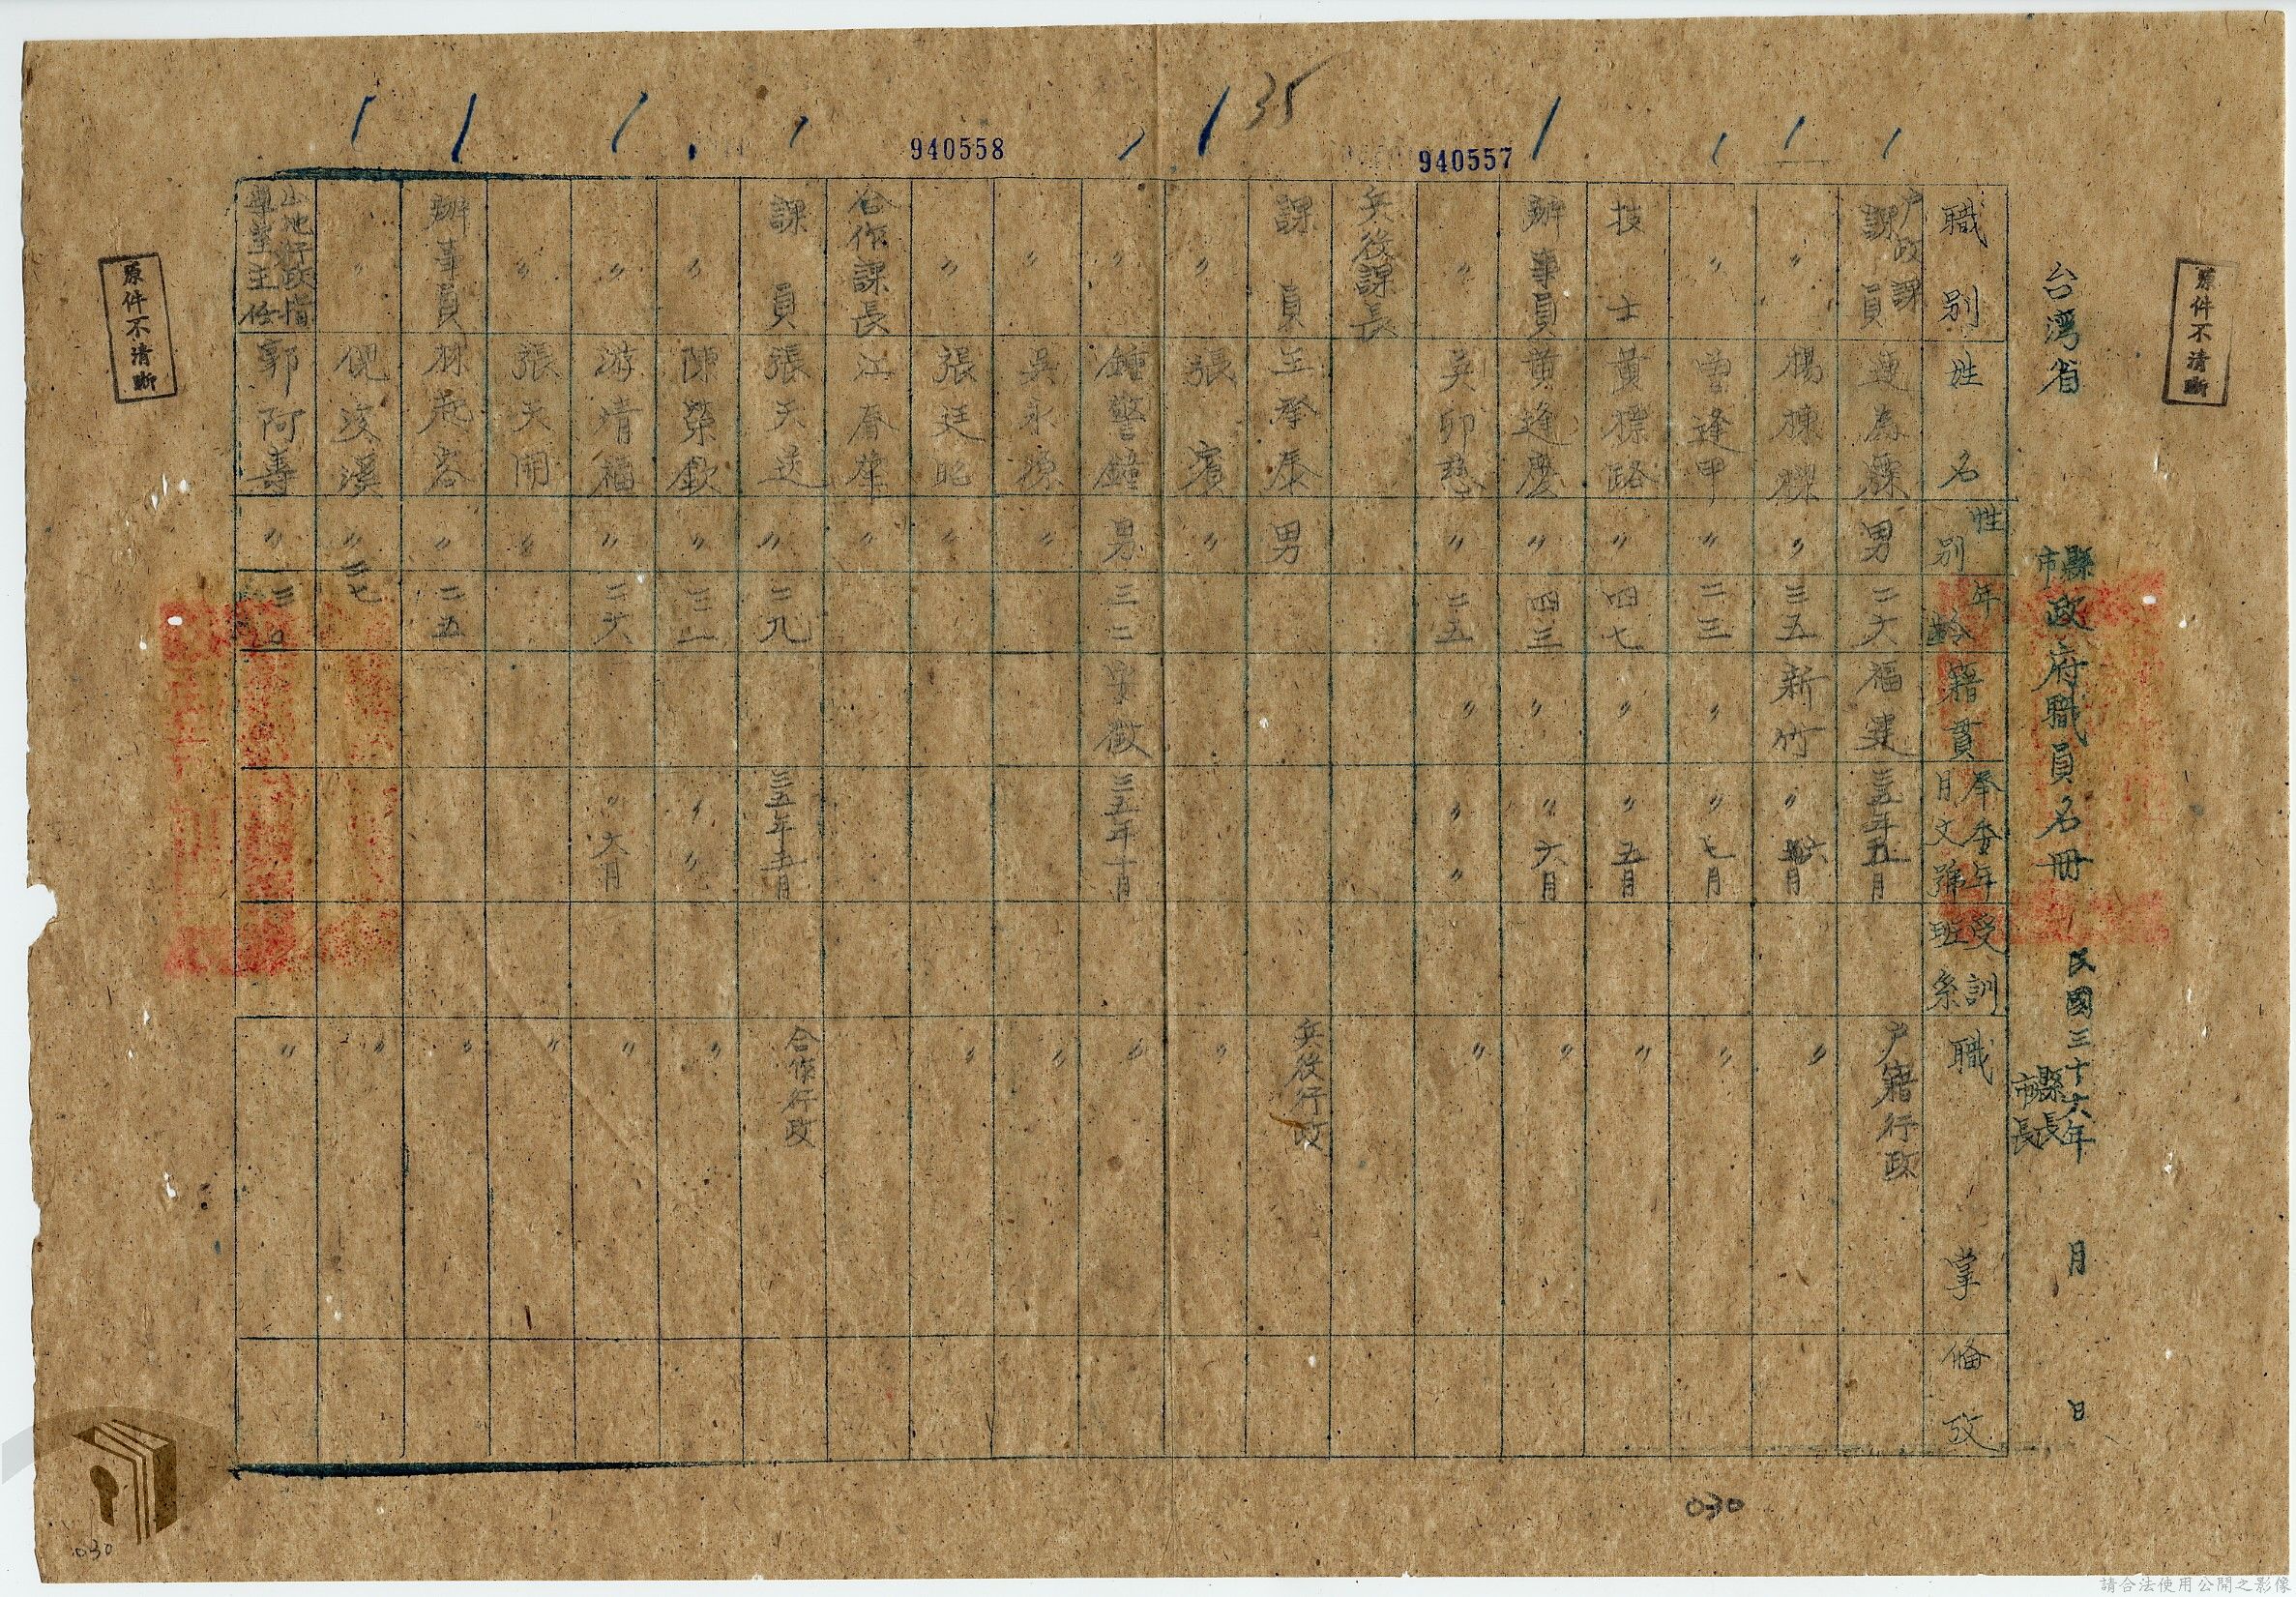 35
940557
940558
原件不清晰
台湾省 縣市政府職員名冊 民國三十六年 月 日
縣長
市長
職別 姓名 性別 年齡 籍貫 奉委年日文號 受訓班系 職掌 備攷
戶政課課員 連為 男 二六 福建 三五年五月 戶籍行政
〃 楊棟樑 〃 三五 新竹 〃 六月 〃
〃 曾逢甲 〃 二三 〃 〃 七月 〃
技士 黃標路 〃 四七 〃 〃 五月 〃
辦事員 黃逢慶 〃 四三 〃 〃 六月 〃
〃 吳卯 〃 二五 〃 〃 〃 〃
兵役課長
課員 王 男 兵役行政
〃 張濱 〃 〃
〃 鐘警鐘 男 三二 安徽 三五年十月 〃
〃 吳永 〃 〃
〃 張廷昭 〃 〃
合作課長 江 〃
課員 張天送 〃 二九 三五年五月 合作行政
〃 陳榮欽 〃 三一 〃 〃 〃
〃 游靖福 〃 二六 〃 六月 〃
〃 張天開 〃 〃
辦事員 林 〃 二五 〃
〃 倪溪 〃 三七 〃
山地行政指導室主任 郭阿壽 〃 〃
原件不清晰
030
030
請合法使用公開之影像